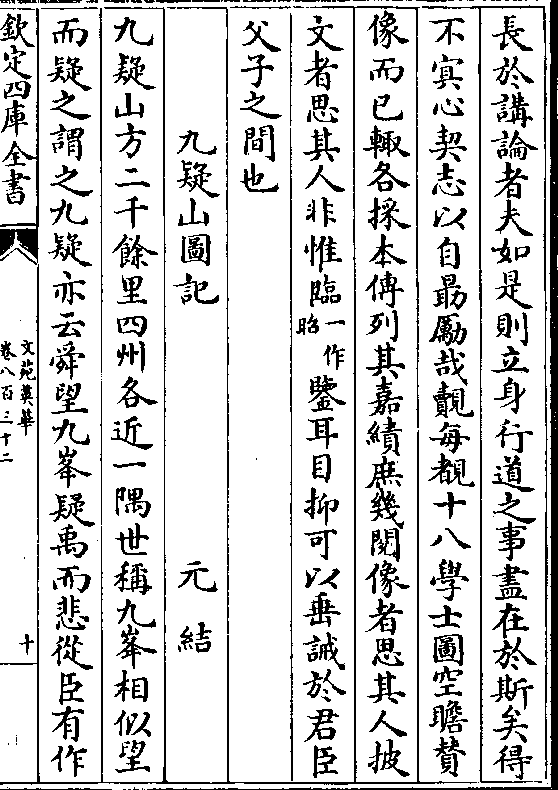 長於講論者夫如是則立身行道之事盡在於斯矣得
不寘心契志以自勗勵哉覿每覩十八學士圖空瞻賛
像而已輙各採本傳列其嘉績庶幾閱像者思其人披
文者思其人非惟臨一作昭鑒耳目抑可以垂誡於君臣
父子之間也
九疑山圖記　元結
九疑山方二千餘里四州各近一隅世稱九峯相似望
而疑之謂之九疑亦云舜望九峯疑禹而悲從臣有作
欽定四庫全書
文苑英華
卷八百三十二
十